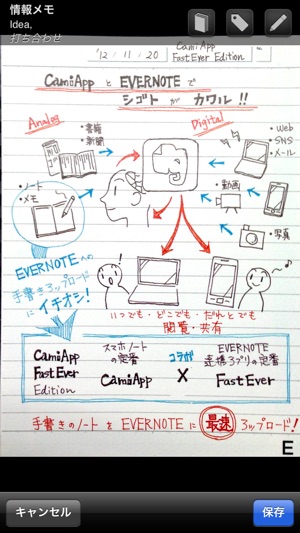 情報メモ
Idea,
打ち合わせ
'12 / 11 / 20
CamiApp
FastEver Edition
CamiApp と EVERNOTE で
シゴト が カワル !!
Analog
Digital
・書籍
・新聞
・Web
・SNS
・メール
・ノート
・メモ
・動画
・写真
EVERNOTEへの
手書きアップロード
にイチオシ!
いつでも・どこでも・だれとでも
閲覧・共有
CamiApp
FastEver
Edition
スマホノート
の定番
CamiApp
コラボ
X
EVERNOTE
連携アプリの定番
FastEver
手書きのノートを EVERNOTE に 最速 アップロード!
E
キャンセル
保存